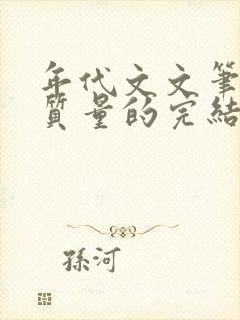 年代文文筆
質量的完結
孫河